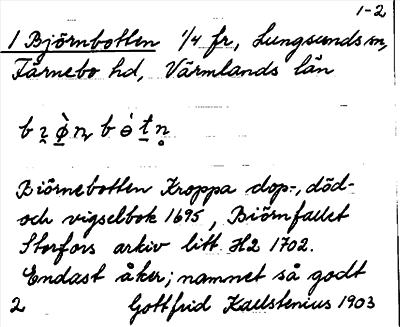 1-2
1 Björnbotten 1/4 fr, Lungsunds sn,
Färnebo hd, Värmlands län
Biörnebotten Kroppa dop-, död-
och vigselbok 1695, Biörnfallet
Storfors arkiv litt. H2 1702.
Endast åker; namnet så godt
2 Gottfrid Kallstenius 1903